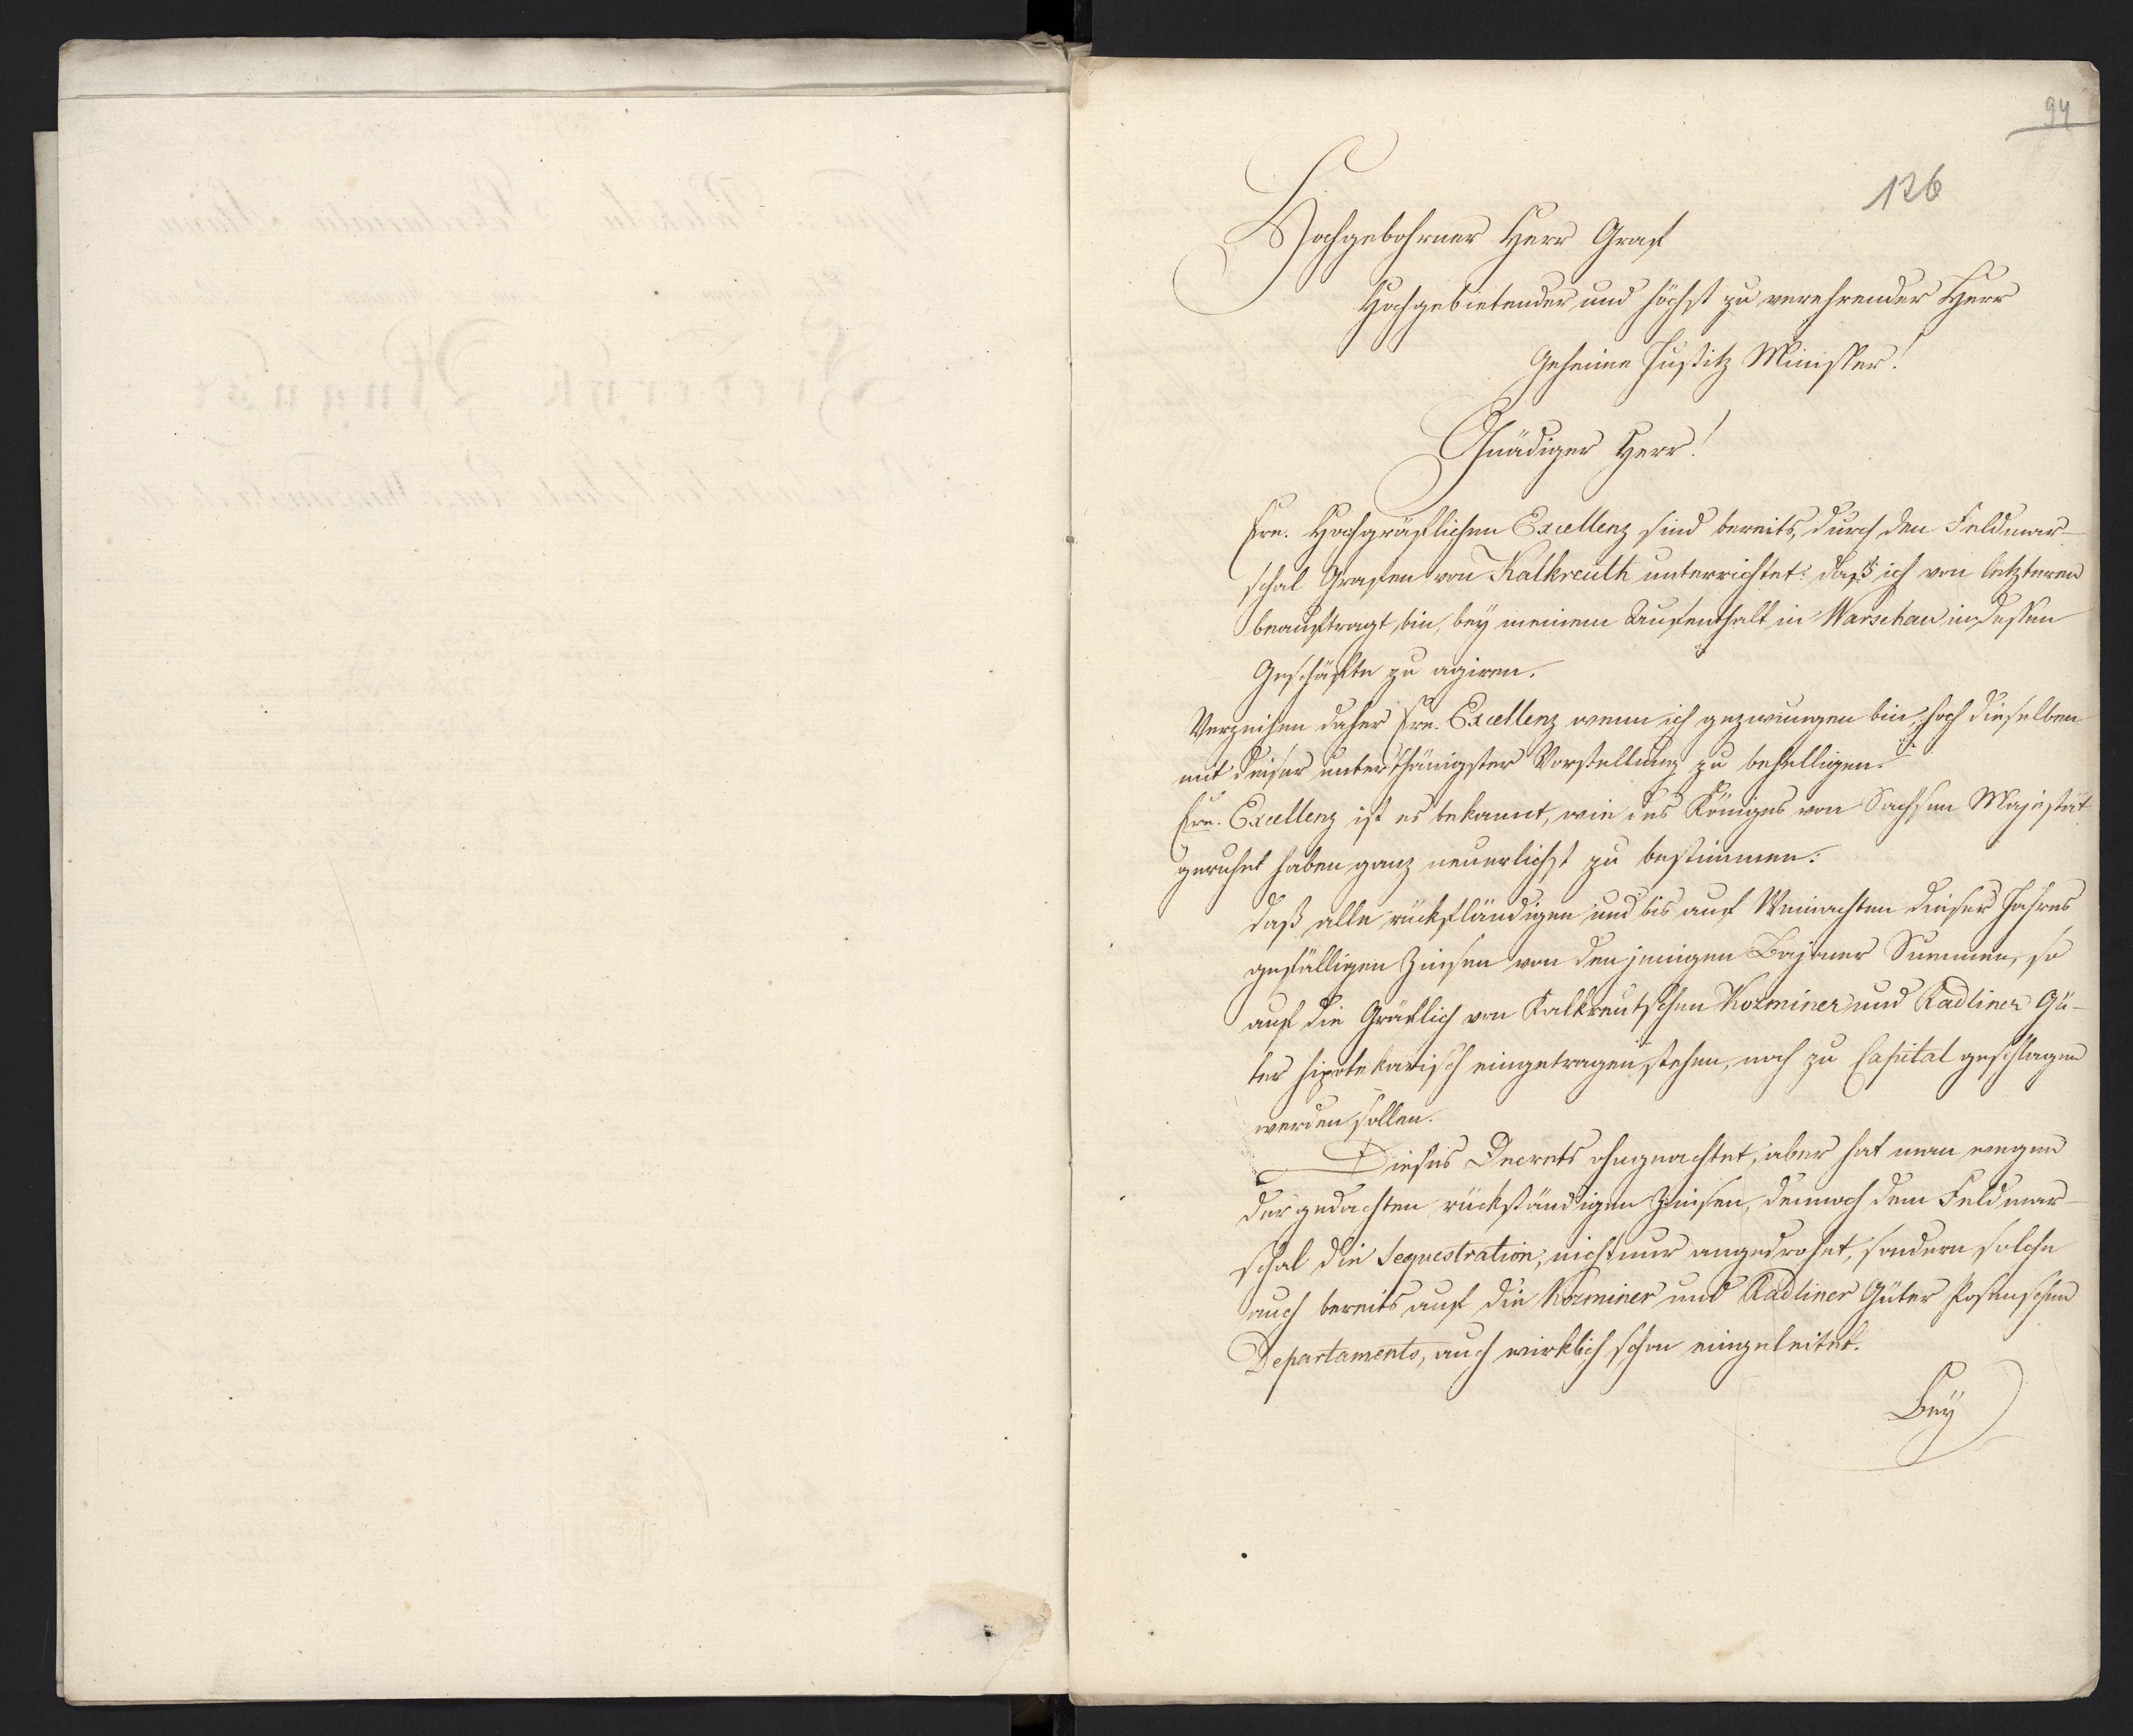 94
126
Hochgebohrner Herr Graf
Hochgebietender und höchst zu verehrender Herr
Geheime Justitz Minister!
Gnädiger Herr!
Ew. Hochgräflichen Excellenz sind bereits, durch den Feldmar-
schal Grafen von Kalkreuth unterrichtet: daß ich von letzteren
beauftragt bin, bey meinem Aufenthalt in Warschau in dessen
Geschäfte zu agiren.
Verzeihen daher Ew. Excellenz wenn ich gezwungen bin, hoch dieselben
mit dieser unterthänigster Vorstellung zu behelligen.
Ew. Excellenz ist es bekannt, wie des Königes von Sachsen Majestät
geruhet haben ganz neuerlichst zu bestimmen:
daß alle rückständigen und bis auf Weinachten dieses Jahres
gefälligen Zinsen von denjenigen Bajoner Summen, so
auf die Gräflich von Kalkreutschen Kozminer und Radliner Gü-
ter hipotekarisch eingetragen stehen, noch zu Capital geschlagen
werden sollen.
Dieses Decrets ohngeachtet, aber hat man wegen
der gedachten rückständigen Zinsen, dennoch dem Feldmar-
schal die Sequestration, nicht nur angedrohet, sondern solche
auch bereits auf die Kozminer und Radliner Güter Posenschen
Departaments, auch wirklich schon eingeleitet.
Bey